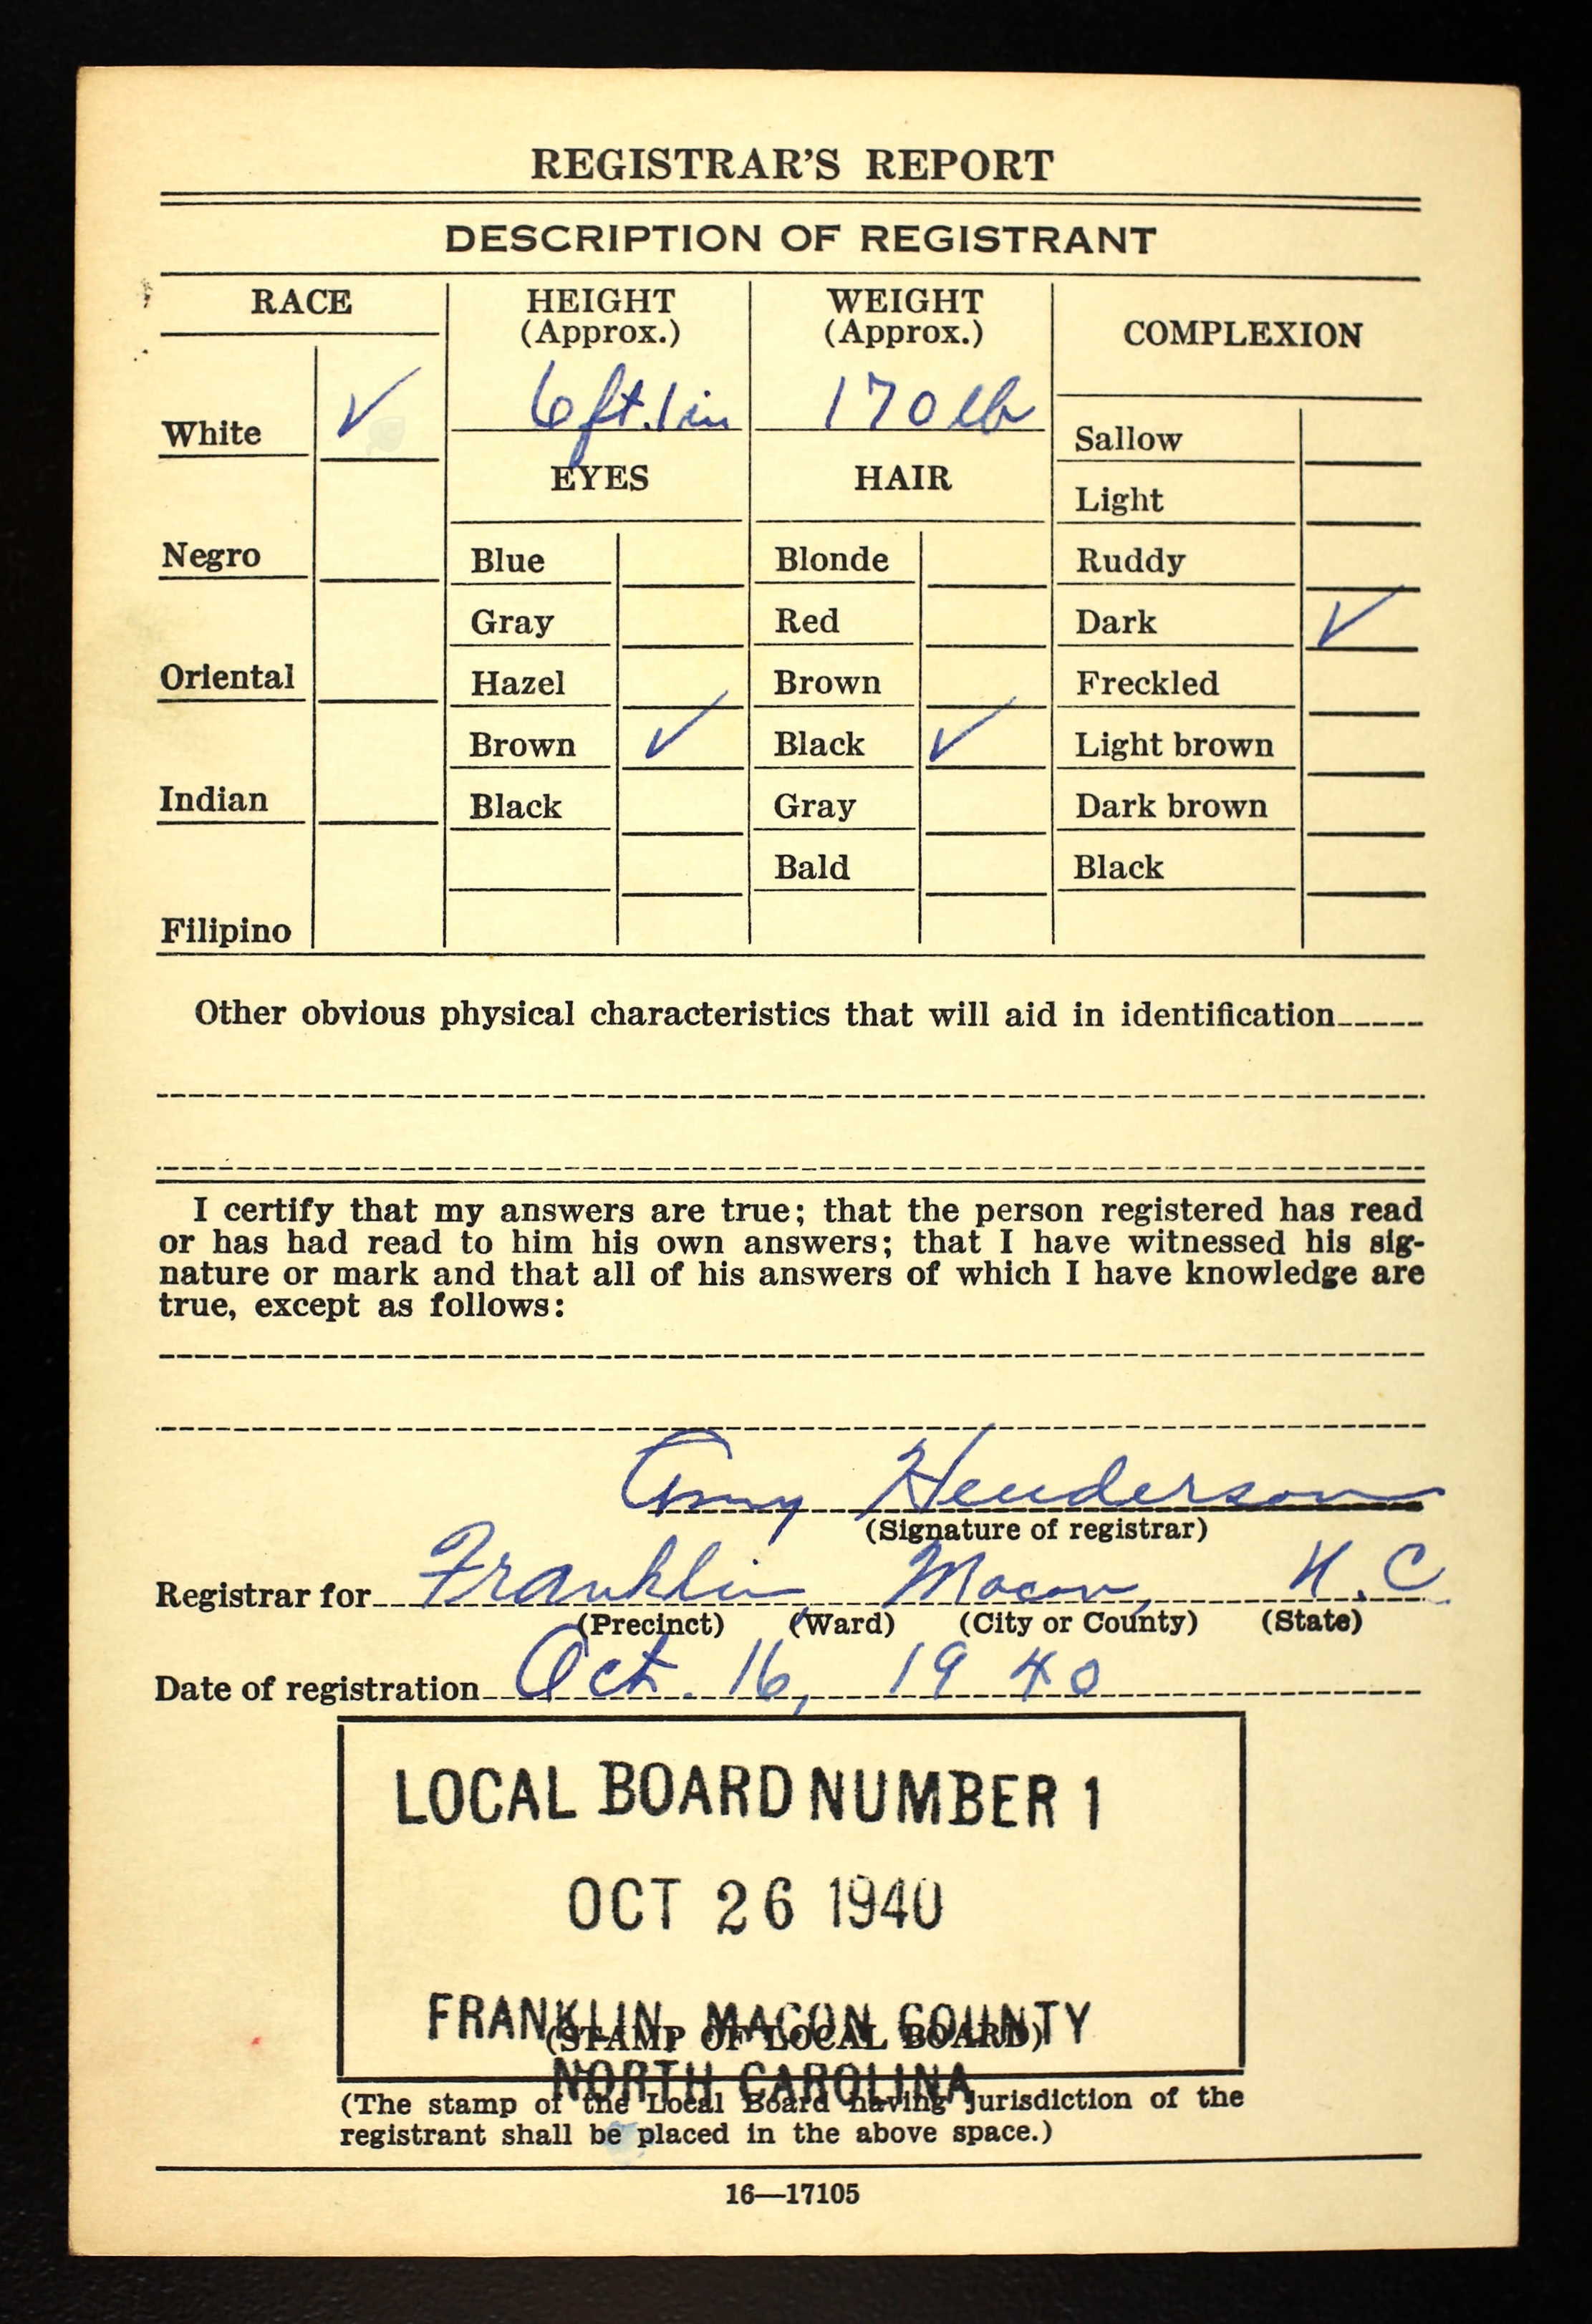 REGISTRAR'S REPORT
DESCRIPTION OF REGISTRANT
RACE
HEIGHT
(Approx.)
WEIGHT
(Approx.)
COMPLEXION
White ✓
6 ft. 1 in
170 lb
Sallow
EYES
HAIR
Light
Negro
Blue
Blonde
Ruddy
Gray
Red
Dark ✓
Oriental
Hazel
Brown
Freckled
Brown ✓
Black ✓
Light brown
Indian
Black
Gray
Dark brown
Bald
Black
Filipino
Other obvious physical characteristics that will aid in identification
I certify that my answers are true; that the person registered has read
or has had read to him his own answers; that I have witnessed his sig-
nature or mark and that all of his answers of which I have knowledge are
true, except as follows:
Amy Henderson
(Signature of registrar)
Registrar for Franklin, Macon, N.C.
(Precinct) (Ward) (City or County) (State)
Date of registration Oct. 16, 1940
LOCAL BOARD NUMBER 1
OCT 26 1940
FRANKLIN, MACON COUNTY
(STAMP OF LOCAL BOARD)
NORTH CAROLINA
(The stamp of the Local Board having jurisdiction of the
registrant shall be placed in the above space.)
16—17105